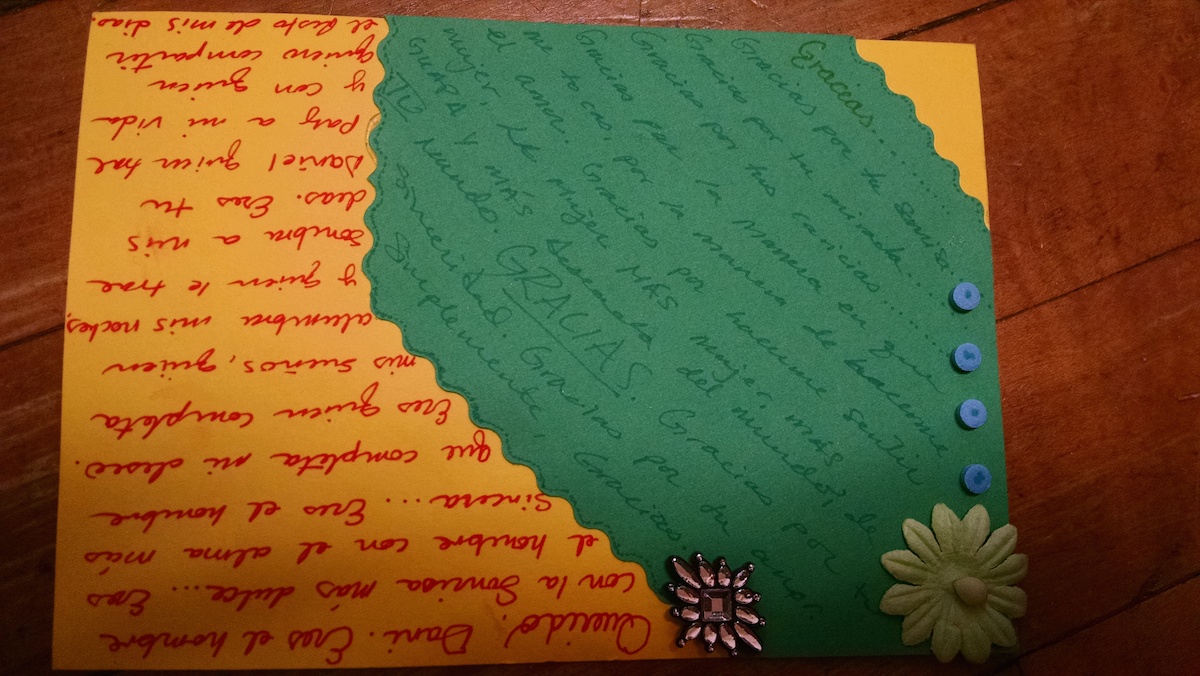 Querido Dani. Eres el hombre
con la Sonrisa más dulce... Eres
el hombre con el alma más
Sincera... Eres el hombre
que completa mi deseo.
Eres quien completa
mis sueños, quien
alumbra mis noches,
y quien le trae
Sombra a mis
dias. Eres tu
Daniel quien trae
Paz a mi vida
y con quien
quiero compartir
el resto de mis dias.
Gracias........
Gracias por tu sonrisa.
Gracias por tu mirada....
Gracias por tus caricias.....
Gracias por la manera en que
me tocas, por la manera de hacerme
el amor. Gracias por hacerme sentir
mujer, la mujer MÁS mujer, MÁS
GUAPA Y MÁS deseada del mundo, de
TU mundo. GRACIAS. Gracias por tu
sinceridad. Gracias por tu amor.
Simplemente, Gracias